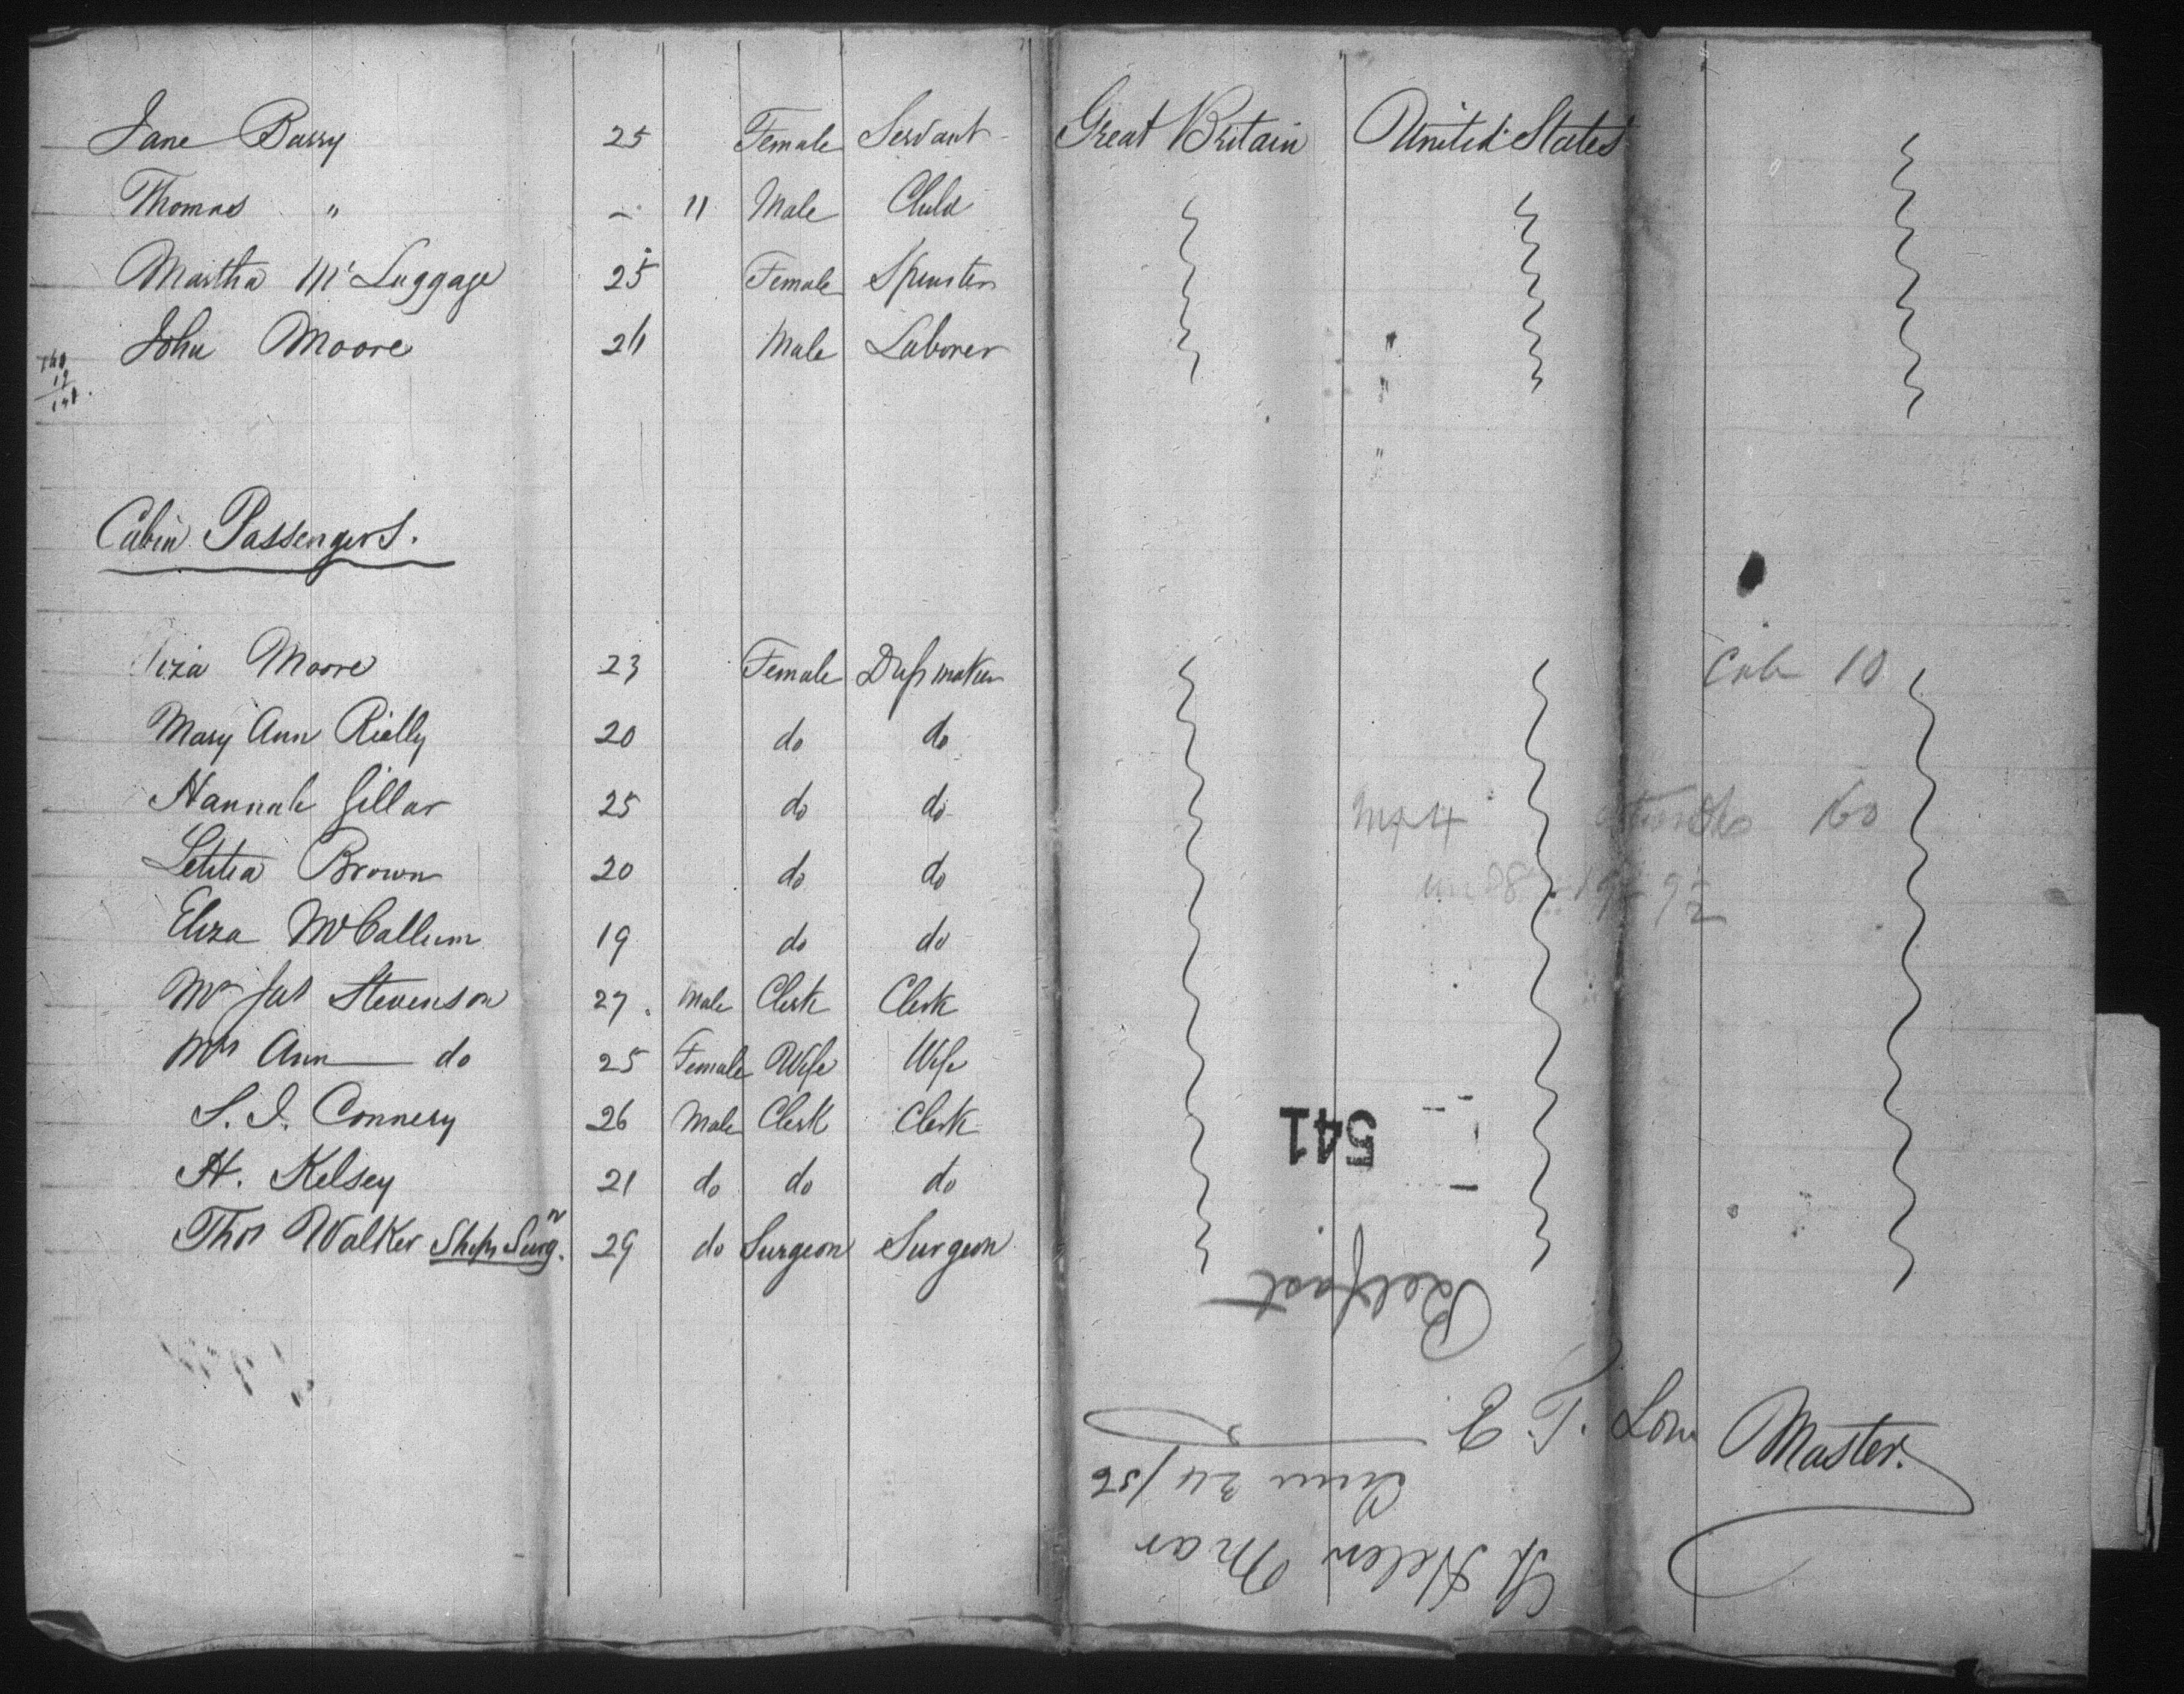 Jane Barry 25 Female Servant Great Britain United States
Thomas " - 11 Male Child
Martha Mc Luggage 25 Female Spinster
John Moore 26 Male Laborer
Cabin Passengers.
Moore 23 Female Dressmaker
Cab 10
Mary Ann Rielly 20 do do
Hannah Gillar 25 do do
60
Letitia Brown 20 do do
Eliza McCallum 19 do do
Mr Jas Stevenson 27. Male Clerk Clerk
Mrs Ann do 25 Female Wife Wife
S. J. Connery 26 Male Clerk Clerk
H. Kelsey 21 do do do
Thos Walker Ships Surgn. 29 do Surgeon Surgeon
E. T. Master.
St Helen Mar
24/56
Belfast
541